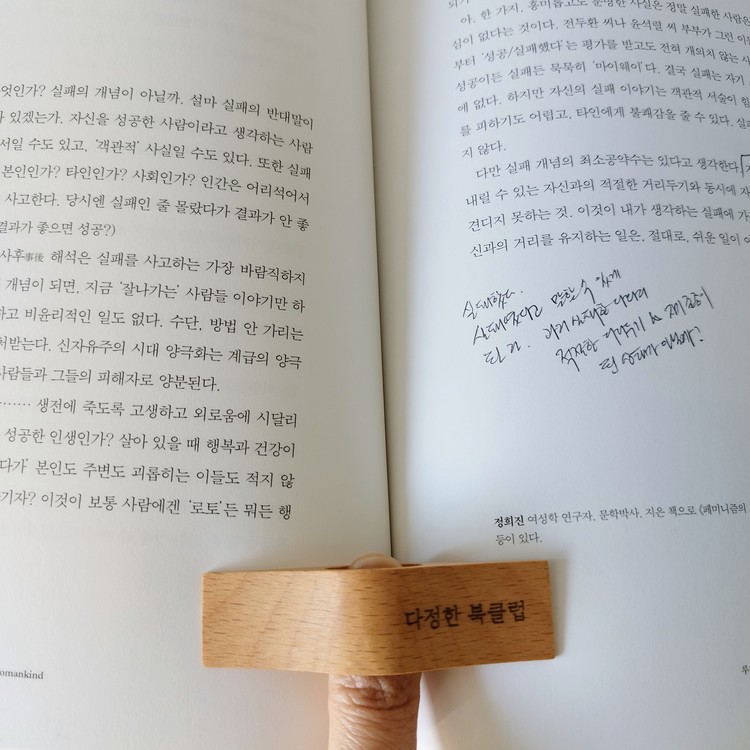 엇인가? 실패의 개념이 아닐까. 설마 실패의 반대말이
가 있겠는가. 자신을 성공한 사람이라고 생각하는 사람
서일 수도 있고, ‘객관적’ 사실일 수도 있다. 또한 실패
본인인가? 타인인가? 사회인가? 인간은 어리석어서
사고한다. 당시엔 실패인 줄 몰랐다가 결과가 안 좋
결과가 좋으면 성공?)
사후事後 해석은 실패를 사고하는 가장 바람직하지
개념이 되면, 지금 ‘잘나가는’ 사람들 이야기만 하
하고 비윤리적인 일도 없다. 수단, 방법 안 가리는
처받는다. 신자유주의 시대 양극화는 계급의 양극
사람들과 그들의 피해자로 양분된다.
…… 생전에 죽도록 고생하고 외로움에 시달리
성공한 인생인가? 살아 있을 때 행복과 건강이
다가’ 본인도 주변도 괴롭히는 이들도 적지 않
기자? 이것이 보통 사람에겐 ‘로또’든 뭐든 행
omankind
아, 한 가지, 흥미롭고도 분명한 사실은 정말 실패한 사람은
심이 없다는 것이다. 전두환 씨나 윤석열 씨 부부가 그런 이들
부터 ‘성공/실패했다’는 평가를 받고도 전혀 개의치 않는 사
성공이든 실패든 묵묵히 ‘마이웨이’다. 결국 실패는 자기
에 없다. 하지만 자신의 실패 이야기는 객관적 서술이 힘
를 피하기도 어렵고, 타인에게 불쾌감을 줄 수 있다. 실패
지 않다.
다만 실패 개념의 최소공약수는 있다고 생각한다.
내릴 수 있는 자신과의 적절한 거리두기와 동시에 자
견디지 못하는 것. 이것이 내가 생각하는 실패에 가
신과의 거리를 유지하는 일은, 절대로, 쉬운 일이 아
실패했다.
실패했다고 말할 수 있게
된 것. 실패를
적절한 거리두기
정희진 여성학 연구자, 문학박사. 지은 책으로 《페미니즘의
등이 있다.
다정한 북클럽